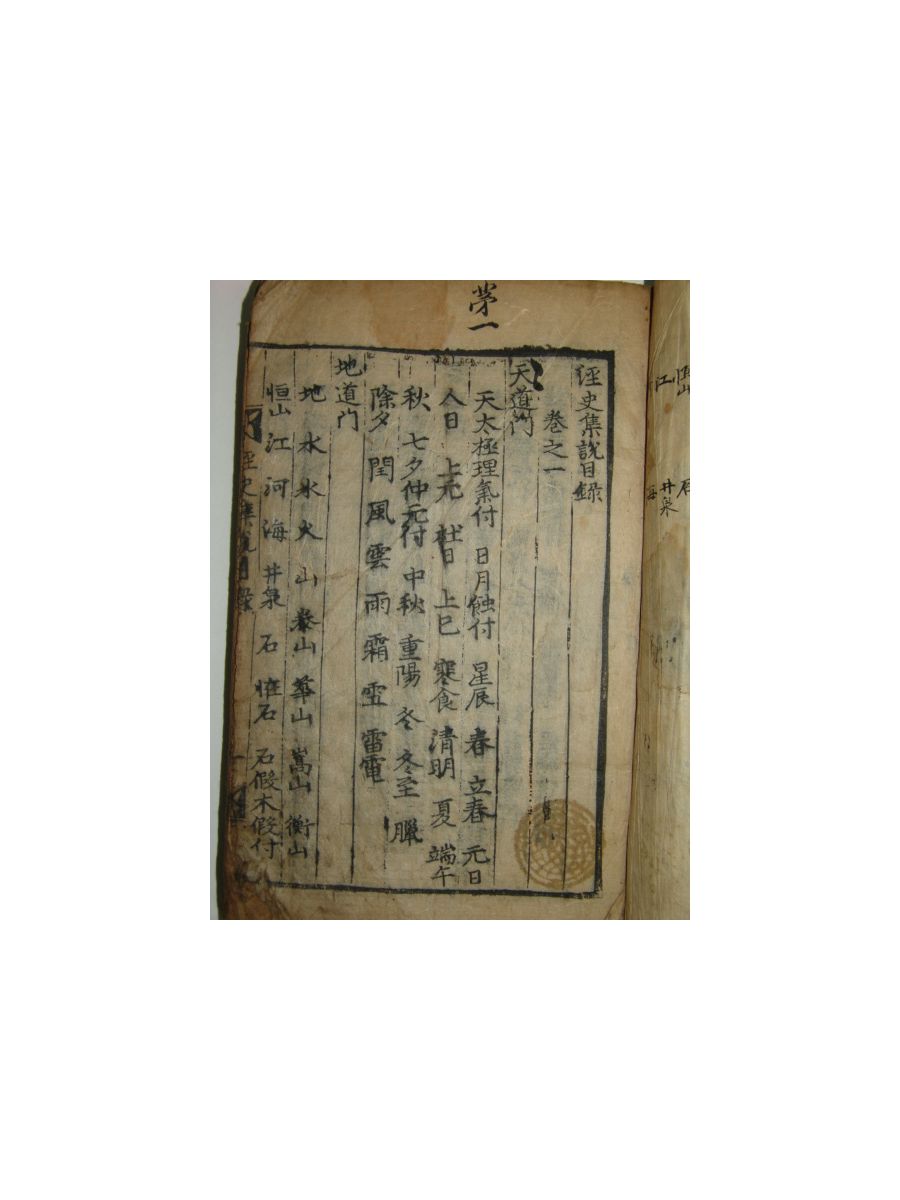 苐一
經史集說目錄
卷之一
天道門
天太極理氣付 日月蝕付 星辰 春 立春 元日
人日 上元 社日 上巳 寒食 清明 夏 端午
秋 七夕仲元付 中秋 重陽 冬 冬至 臘
除夕 閏 風 雲 雨 霜 雪 雷電
地道門
地 水 氷 火 山 泰山 華山 嵩山 衡山
恒山 江 河 海 井泉 石 恠石 石假木假付
經史集說目錄
恒山
江
石
井泉